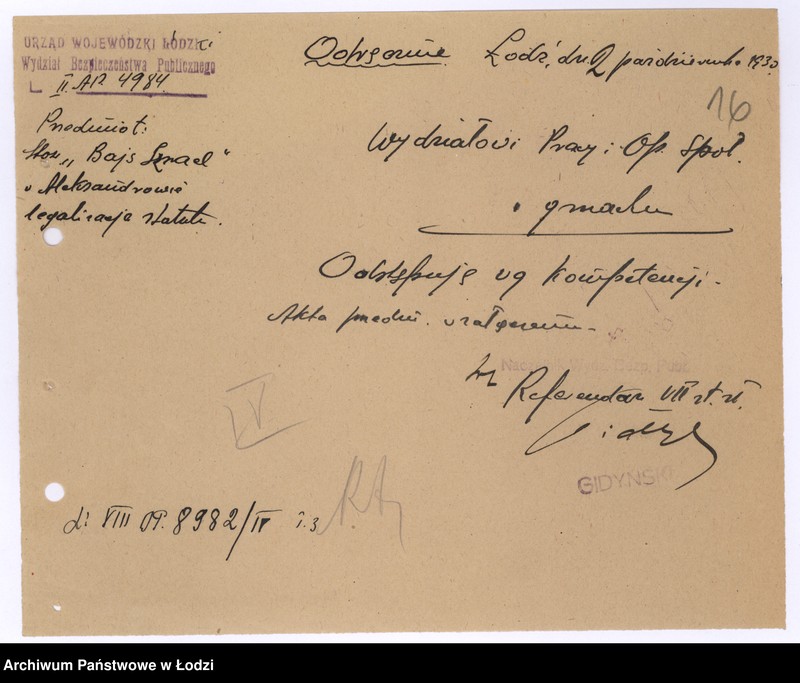 URZĄD WOJEWÓDZKI ŁÓDZKI
Wydział Bezpieczeństwa Publicznego
L II. AP 4984
Odręcznie Łódź, dn. 2 października 1930
16
Przedmiot:
Stow. „Bajs Izrael"
w Aleksandrowie
legalizacja statutu.
Wydziałowi Pracy i Op. Społ.
w gmachu
Odstępuję wg kompetencji.
Akta przedm. w załączeniu.
Naczelnik Wydz. Bezp. Publ.
Referendarz VII st. sł.
GIDYŃSKI
IV
L: VIII OP. 8982/IV
Archiwum Państwowe w Łodzi